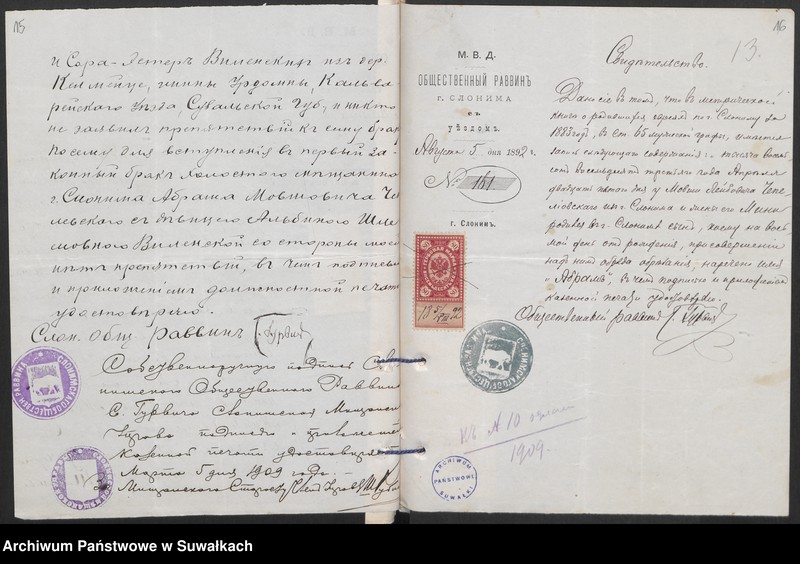 15
и Сора-Эстеръ Виленскихъ изъ дер.
гмины Урдомины, Кальва-
рейского Уѣзда, Сувалкской Губ., и никто
не заявилъ препятствій къ сему браку
посему для вступленія въ первый за-
конный бракъ холостого мѣщанина
г. Слонима Абрама Мовшовича
съ дѣвицею Шле-
мовною Виленской со стороны моей
нѣтъ препятствій, въ чемъ подписью
и приложеніемъ должностной печати
удостовѣряю.
Слон. Общ. Раввинъ Г. Гурвичъ
Собственноручную подпись Сло-
нимскаго Общественнаго Раввина
Г. Гурвича Слонимская Мѣщанская
Управа подписью и приложеніемъ
Казенной печати удостовѣряетъ
Марта 5 дня 1909 года.
Мѣщанскій Староста
16
13.
М. В. Д.
ОБЩЕСТВЕННЫЙ РАВВИНЪ
г. СЛОНИМА
съ
уѣздомъ.
Августа 5 дня 1892 г.
№ 161
г. Слонимъ.
18 5/VIII 92
Свидѣтельство.
Дано сіе въ томъ, что въ метрической
книгѣ о родившихся евреяхъ по г. Слониму за
1883 годъ, въ ст. 65 мужской графы, имѣется
запись слѣдующаго содержанія: тысяча восемь
сотъ восемьдесятъ третьяго года Апрѣля
двадцать дня у Мовши Лейбовича
изъ г. Слонима и жены его
родился въ г. Слонимѣ сынъ, коему на вось-
мой день отъ рожденія, при совершеніи
надъ нимъ обряда обрѣзанія, наречено имя
„Абрамъ", въ чемъ подписью и приложеніемъ
казенной печати удостовѣряю.
Общественный раввинъ Г. Гурвичъ
къ № 10
1909.
ARCHIWUM
PAŃSTWOWE
SUWAŁKI
Archiwum Państwowe w Suwałkach